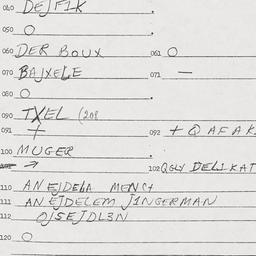 040 DEJFIK
050 O
060 DER BOUX 061 O
070 BAJXELE 071 —
080 O
090 TXEL (208
091 + 092 + Q AFAK
100 MUGER
→ 102 QGLY DELIKAT
110 AN EJDELA MENCH
111 AN EJDELEM JINGERMAN
112 OJSEJDL3N
120 O